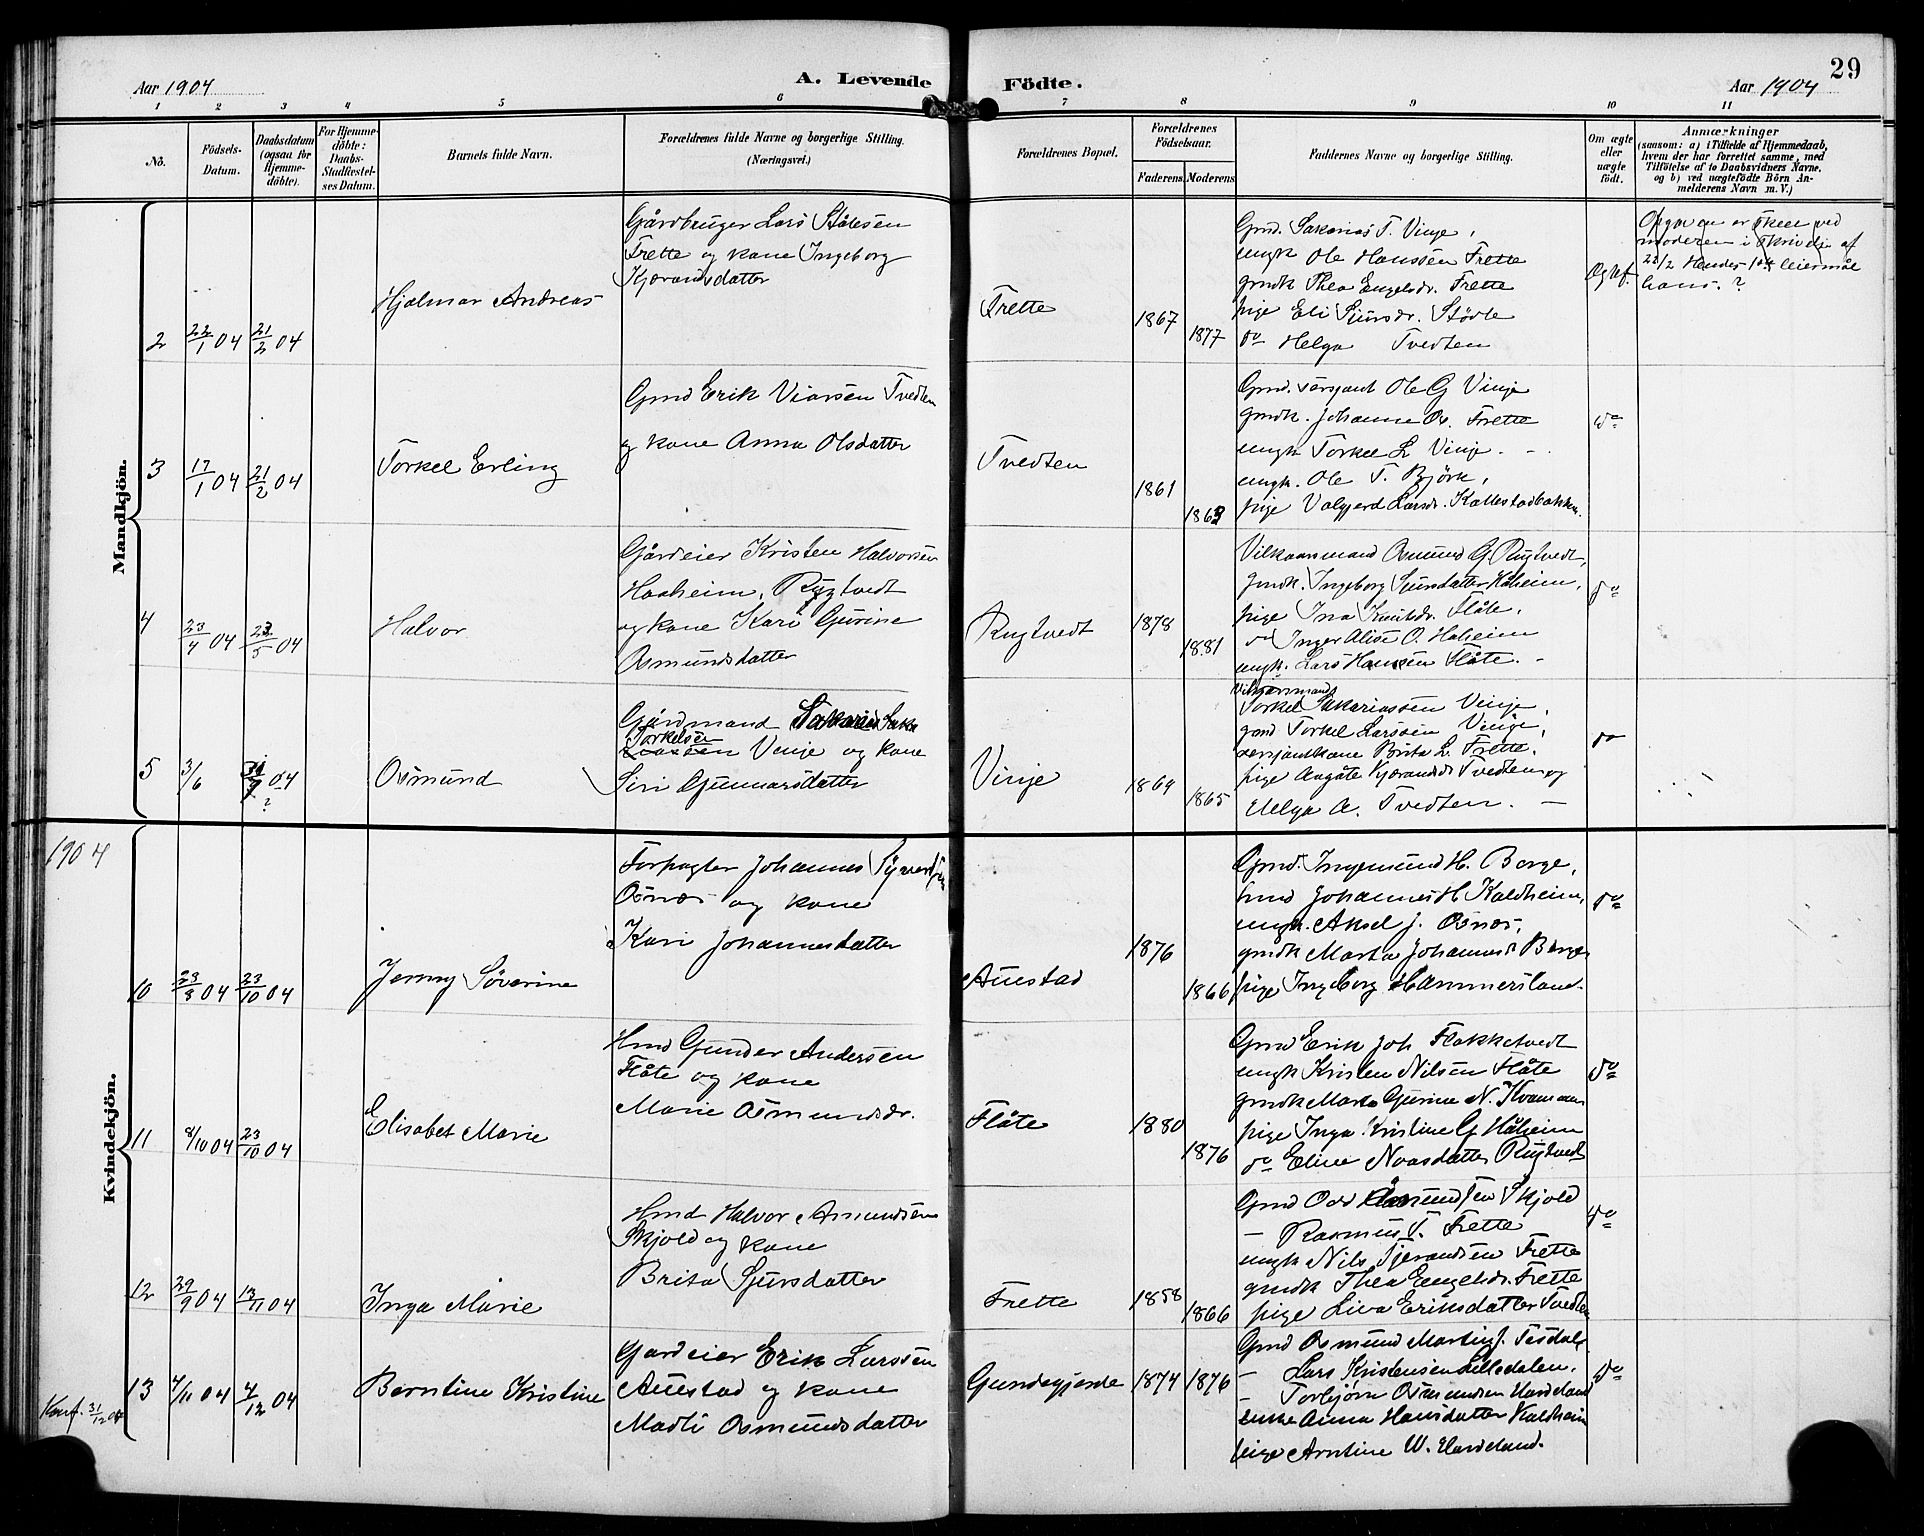 29
Aar 1904
A. Levende
Födte.
Aar 1904
1 2 3 4 5 6 7 8 9 10 11
No.
Födsels-
Datum.
Daabsdatum
(ogsaa for
Hjemme-
döbte).
For Hjemme-
döbte:
Daabs-
Stadfæstel-
ses Datum.
Barnets fulde Navn.
Forældrenes fulde Navne og borgerlige Stilling.
(Næringsvei.)
Forældrenes Bopæl.
Forældrenes
Födselsaar.
Faderens.
Moderens.
Faddernes Navne og borgerlige Stilling.
Om ægte
eller
uægte
født.
Anmærkninger
(saasom: a) i Tilfælde af Hjemmedaab,
hvem der har forrettet samme, med
Tilföielse af to Daabsvidners Navne,
og b) ved uægtefödte Börn An-
melderens Navn m. V.)
Mandkjön.
2
22/1 04
21/2 04
Hjalmar Andreas
Gårdbruger Lars Stålesen
Frette og kone Ingeborg
Kjærandsdatter
Frette
1867
1877
Gmd. Sakarias T. Vinje,
ungk Ole Hanssen Frette
gmdk Thea Engelsdr. Frette
pige Eli Sjursdr. Stødle
do Helga Tvedten
Ægtef.
Opgaven er skeet ved
moderen i skrivelse af
22/2 Hendes 1ste leiermål
hans. ?
3
17/1 04
21/2 04
Torkel Erling
Gmd Erik Viarsen Tvedten
og kone Anna Olsdatter
Tvedten
1861
1863
Gmd. sersjant Ole G Vinje
gmdk. Johanne Ol. Frette
ungk Torkel L Vinje. -
ungk. Ole T. Bjørk,
pige Valgjerd Larsdr. Kallestadbakken.
do
4
23/4 04
23/5 04
Halvor
Gårdeier Kristen Halvorsen
Haaheim, Rygtvedt
og kone Kari Gurine
Osmundsdatter
Rugtvedt
1878
1881
Vilkaarsmand Osmund G. Rugtvedt,
gmdk. Ingeborg Sjursdatter Håheim,
pige Ina Knutsdr. Flåte,
do Inger Alise O. Haheim
ungk. Lars Hansen Flåte. -
do
5
3/6
31/7 04
?
Osmund
Gårdmand Sakarias
Torkelsen
Vinje og kone
Siri Gunnarsdatter
Vinje
1864
1865
Vilkaarsmand
Torkel Sakariassen Vinje,
gmd Torkel Larssen Vinje,
sersjantkone Brita L. Frette,
pige Aagåte Kjærandsdr Tvedten og
Helga A. Tvedten. -
do
1904
Kvindekjön.
10
23/8 04
23/10 04
Jenny Søverine
Forpagter Johannes
Osnes og kone
Kari Johannesdatter
Auestad
1876
1866
Gmd. Ingemund H. Borge,
hmd Johannes H Kaldheim,
ungk. Aksel J. Osnes,
gmdk Marta Johannesd Borge
pige Ingeborg Hammersland.
do
11
8/10 04
23/10 04
Elisabet Marie
Hmd Gunder Andersen
Flåte og kone
Marie Osmundsdr.
Flåte
1880
1876
Gmd Erik Joh Flokketvedt
ungk Kristen Nilsen Flåte
gmdk Marta Gurina N. Kvammen
pige Inga Kristine G Håheim
do Eline Noasdatter Rugtvedt
do
12
29/9 04
13/11 04
Inga Marie
Hmd Halvor Amundsen
Skjold og kone
Brita Sjursdatter
Frette
1858
1866
Gmd Ole Åsmundsen Skjold
- Rasmus T. Frette
ungk Nils Tjerandsen Frette
gmdk Thea Engelsdr. Frette
pige Liva Eriksdatter Tvedten
do
13
4/11 04
4/12 04
Berntine Kristine
Gårdeier Erik Larssen
Auestad og kone
Madli Osmundsdatter
Gundegjerde
1874
1876
Gmd Osmund Martin J. Tesdal
- Lars Kristensen Lilledalen.
- Torbjørn Osmundsen Hardeland
enke Anna Hansdatter Kaldheim
pige Arntine W. Hardeland.
do
Konf. 31/12 04